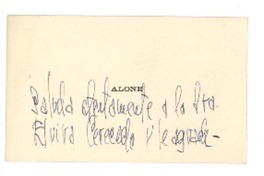 ALONE
Saluda atentamente a la Sra.
Elvira Cereceda y le agrade-